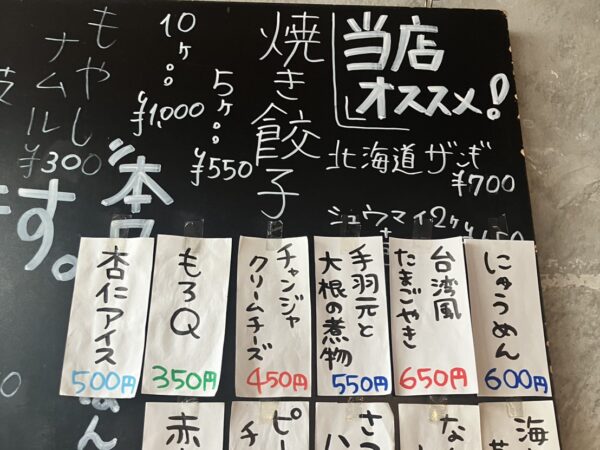 当店
オススメ!
北海道ザンギ
¥700
シュウマイ2ケ
焼き餃子
5ケ
¥550
10ケ
¥1,000
もやし
ナムル
¥300
す。
にゅうめん
600円
台湾風
たまごやき
650円
手羽元と
大根の煮物
550円
チャンジャ
クリームチーズ
450円
もろQ
350円
杏仁アイス
500円
海
な
さ
ピー
チ
赤